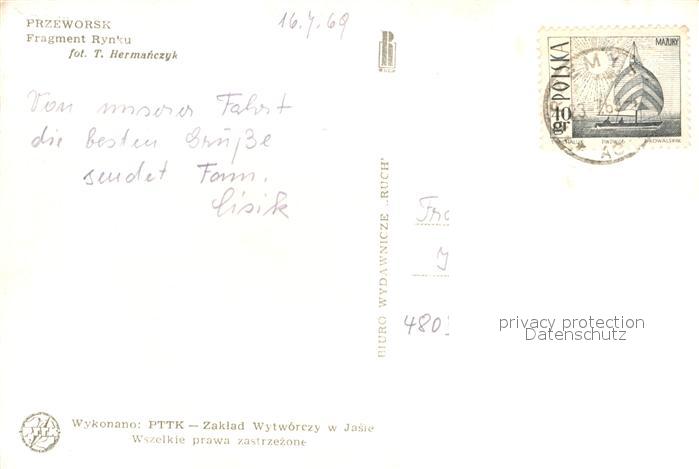 PRZEWORSK
Fragment Rynku
fot. T. Hermańczyk
16.7.69
Von unserer Fahrt
die besten Grüße
sendet Fam.
Cisik
RUCH
POLSKA
MAZURY
10 gr
BIURO WYDAWNICZE „RUCH"
480
privacy protection
Datenschutz
Wykonano: PTTK — Zakład Wytwórczy w Jaśle
Wszelkie prawa zastrzeżone